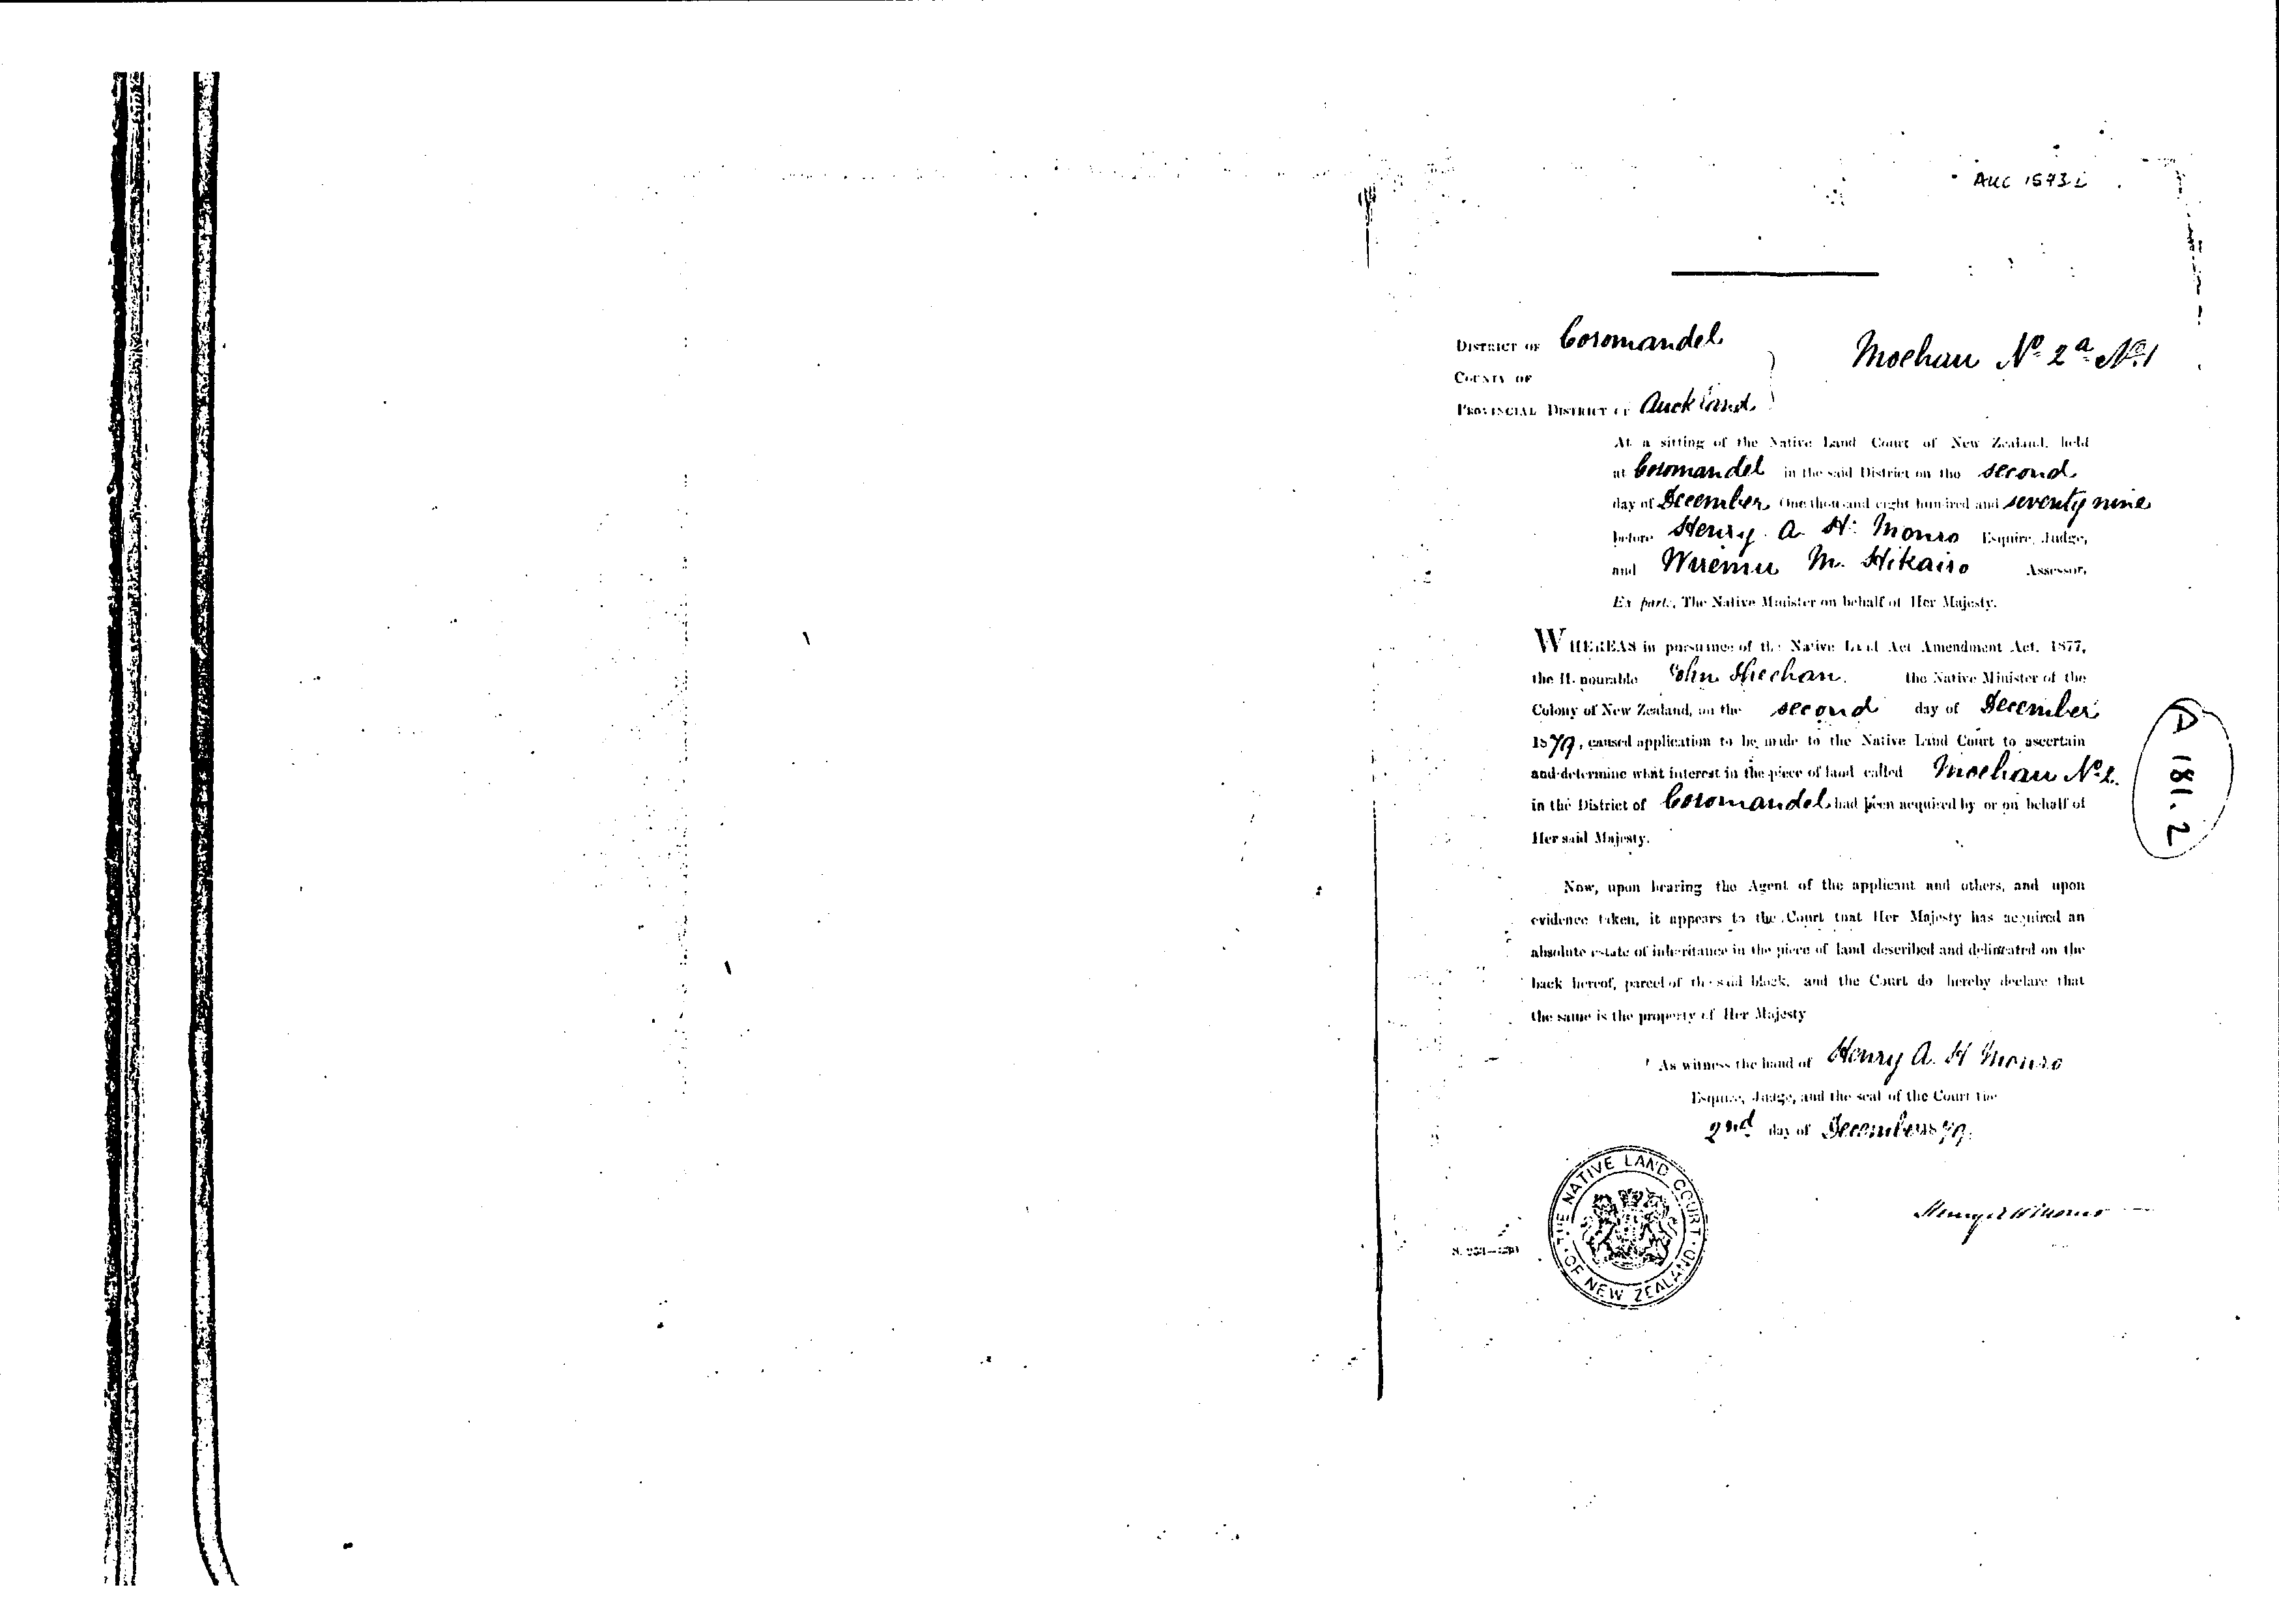 AUC 1573
District of Coromandel
Moehau No. 2a No. 1
County of
Provincial District of Auckland
At a sitting of the Native Land Court of New Zealand, held
at Coromandel in the said District on the second
day of December One thousand eight hundred and seventy nine
before Henry A. H. Monro Esquire, Judge,
and Wiremu M. Hikairo Assessor,
Ex parte, The Native Minister on behalf of Her Majesty.
WHEREAS in pursuance of the Native Land Act Amendment Act, 1877,
the Honourable John Sheehan the Native Minister of the
Colony of New Zealand, on the second day of December
1879, caused application to be made to the Native Land Court to ascertain
and determine what interest in the piece of land called Moehau No. 2.
in the District of Coromandel had been acquired by or on behalf of
Her said Majesty.
A 181.2
Now, upon hearing the Agent of the applicant and others, and upon
evidence taken, it appears to the Court that Her Majesty has acquired an
absolute estate of inheritance in the piece of land described and delineated on the
back hereof, parcel of the said block, and the Court do hereby declare that
the same is the property of Her Majesty
As witness the hand of Henry A. H Monro
Esquire, Judge, and the seal of the Court the
2nd day of December 1879.
THE NATIVE LAND COURT OF NEW ZEALAND